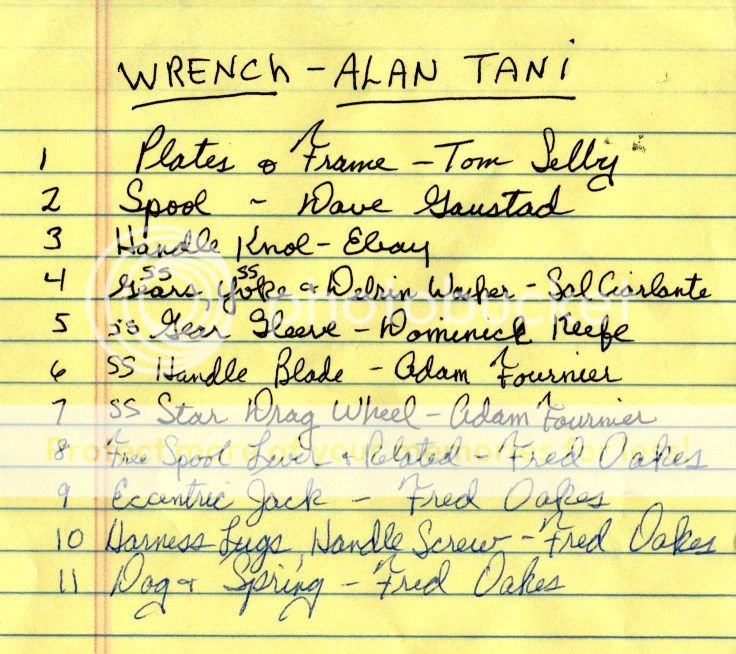 WRENCH - ALAN TANI
1 Plates & Frame - Tom Selby
2 Spool - Dave Gaustad
3 Handle Knob - Ebay
4 SS Gears, SS Yoke & Delrin Washer - Sal Ciarlante
5 SS Gear Sleeve - Dominick Keefe
6 SS Handle Blade - Adam Fournier
7 SS Star Drag Wheel - Adam Fournier
8 Free Spool Lever & Related - Fred Oakes
9 Eccentric Jack - Fred Oakes
10 Harness Lugs, Handle Screw - Fred Oakes
11 Dog & Spring - Fred Oakes
photobucket
Protect more of your memories for less!